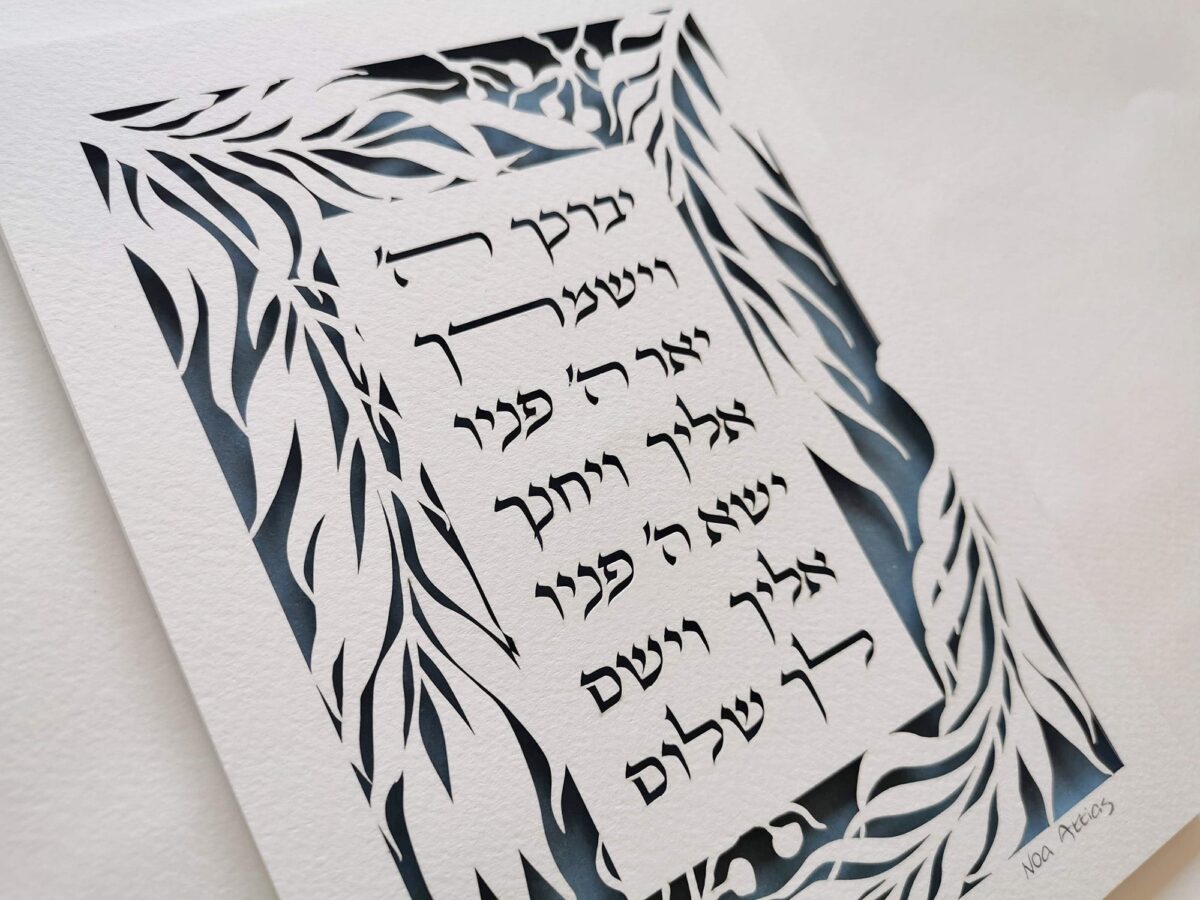 יברכך ה'
וישמרך
יאר ה' פניו
אליך ויחנך
ישא ה' פניו
אליך וישם
לך שלום
Noa Attias